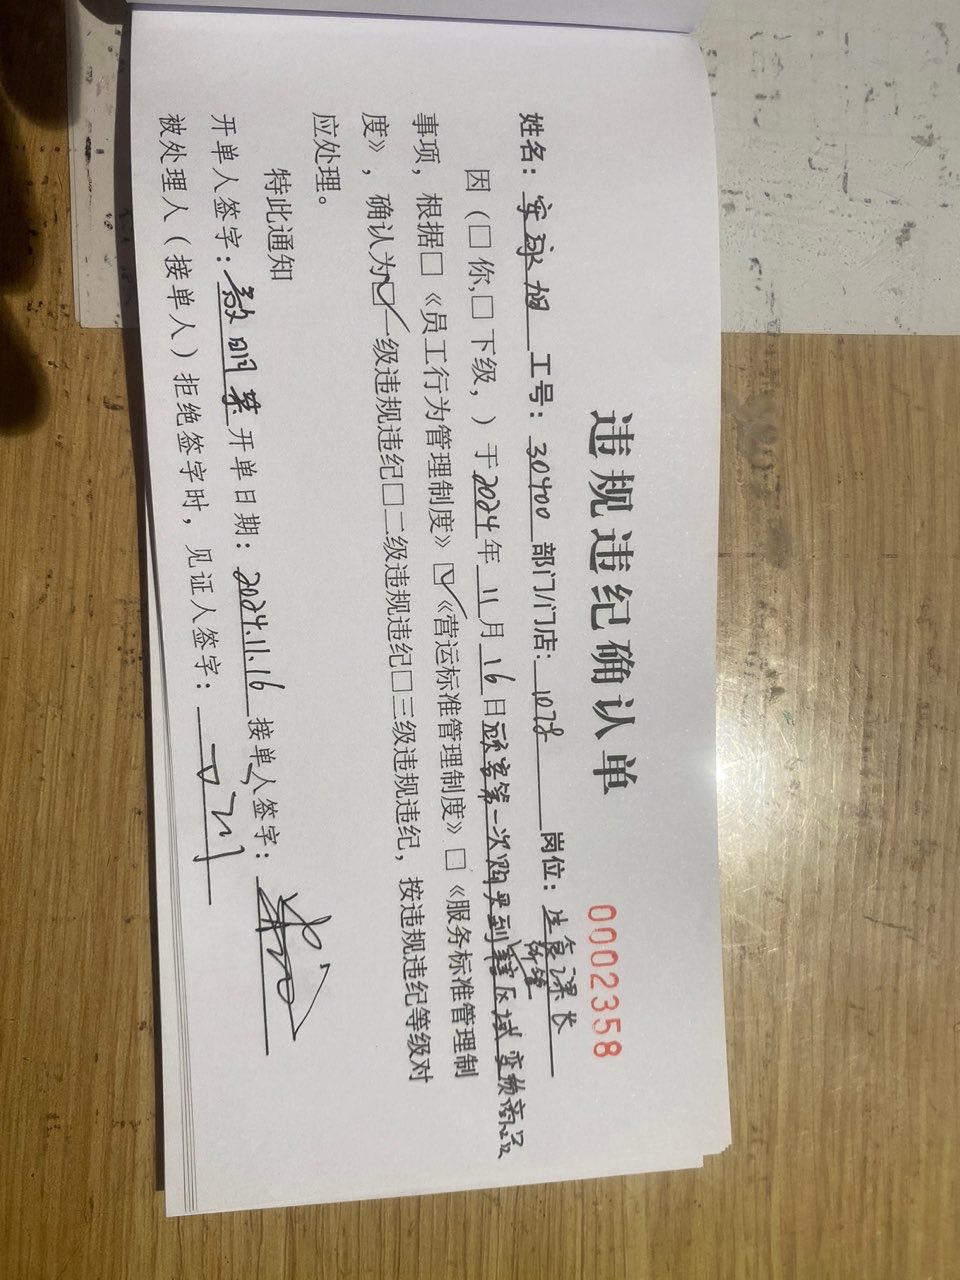 违规违纪确认单
0002358
姓名：安 旭 工号：30400 部门/门店：1078 岗位：生鲜课长
因（□你,□下级，）于2024年11月16日顾客第一次购买到 所管 区域变质商品
事项，根据□《员工行为管理制度》☑《营运标准管理制度》□《服务标准管理制
度》，确认为☑一级违规违纪□二级违规违纪□三级违规违纪，按违规违纪等级对
应处理。
特此通知
开单人签字： 明 开单日期：2024.11.16 接单人签字：
被处理人（接单人）拒绝签字时，见证人签字：